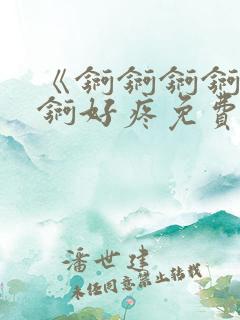 《锕锕锕锕
锕好疼免費
潘世建
未經同意禁止轉載